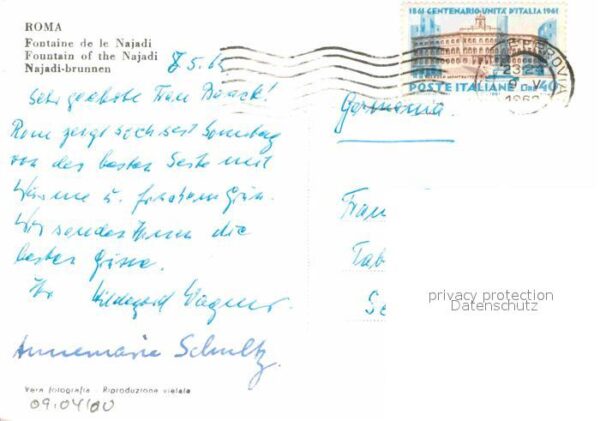 ROMA
Fontaine de le Najadi
Fountain of the Najadi
Najadi-brunnen
1861 CENTENARIO UNITA' D'ITALIA 1961
POSTE ITALIANE Lire 40
8.5.6
Sehr geehrte Frau
Rom zeigt sich seit Sonntag
von der besten Seite mit
Wärme u. frischem Grün.
Wir senden Ihnen die
besten Grüsse.
Ihr Hildegard Wagner
Annemarie Schultz.
Germania
Frau
Tab
Se
privacy protection
Datenschutz
Vera fotografia - Riproduzione vietata
09.04/00